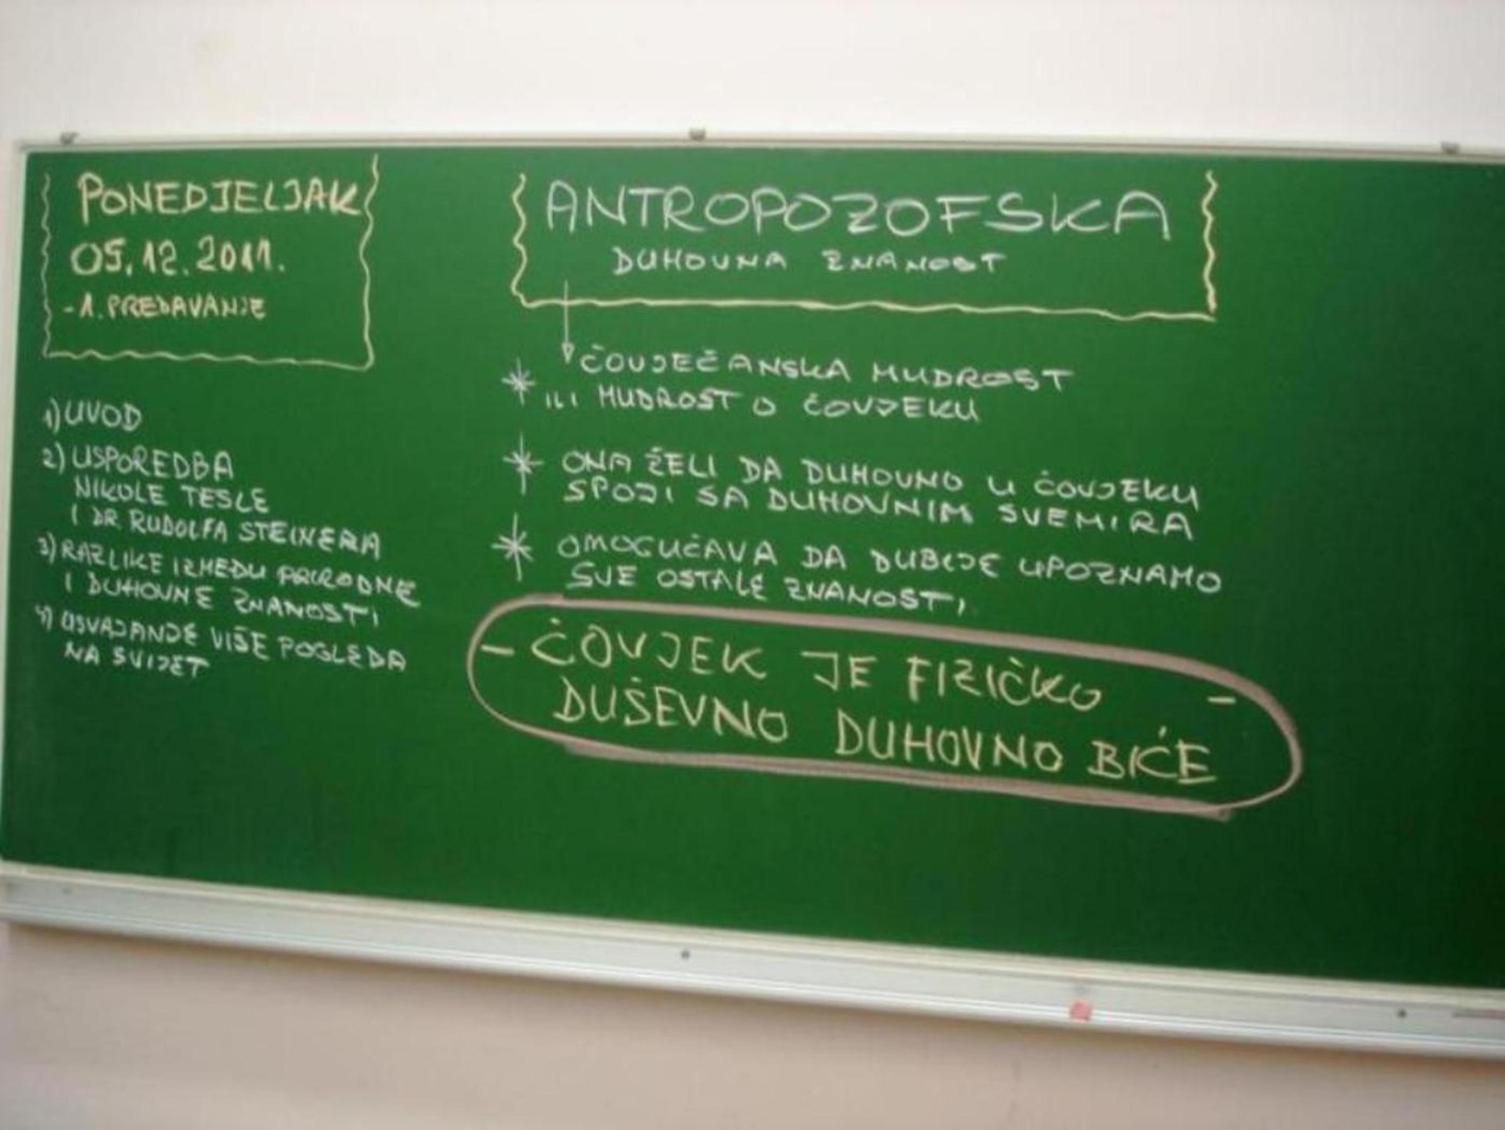 PONEDJELJAK
05.12.2011.
- 1. PREDAVANJE
1) UVOD
2) USPOREDBA
NIKOLE TESLE
I DR. RUDOLFA STEINERA
3) RAZLIKE IZMEĐU PRIRODNE
I DUHOVNE ZNANOSTI
4) USVAJANJE VIŠE POGLEDA
NA SVIJET
ANTROPOZOFSKA
DUHOVNA ZNANOST
ČOVJEČANSKA MUDROST
ILI MUDROST O ČOVJEKU
ONA ŽELI DA DUHOVNO U ČOVJEKU
SPOJI SA DUHOVNIM SVEMIRA
OMOGUĆAVA DA DUBIJE UPOZNAMO
SVE OSTALE ZNANOSTI,
- ČOVJEK JE FIZIČKO -
DUŠEVNO DUHOVNO BIĆE